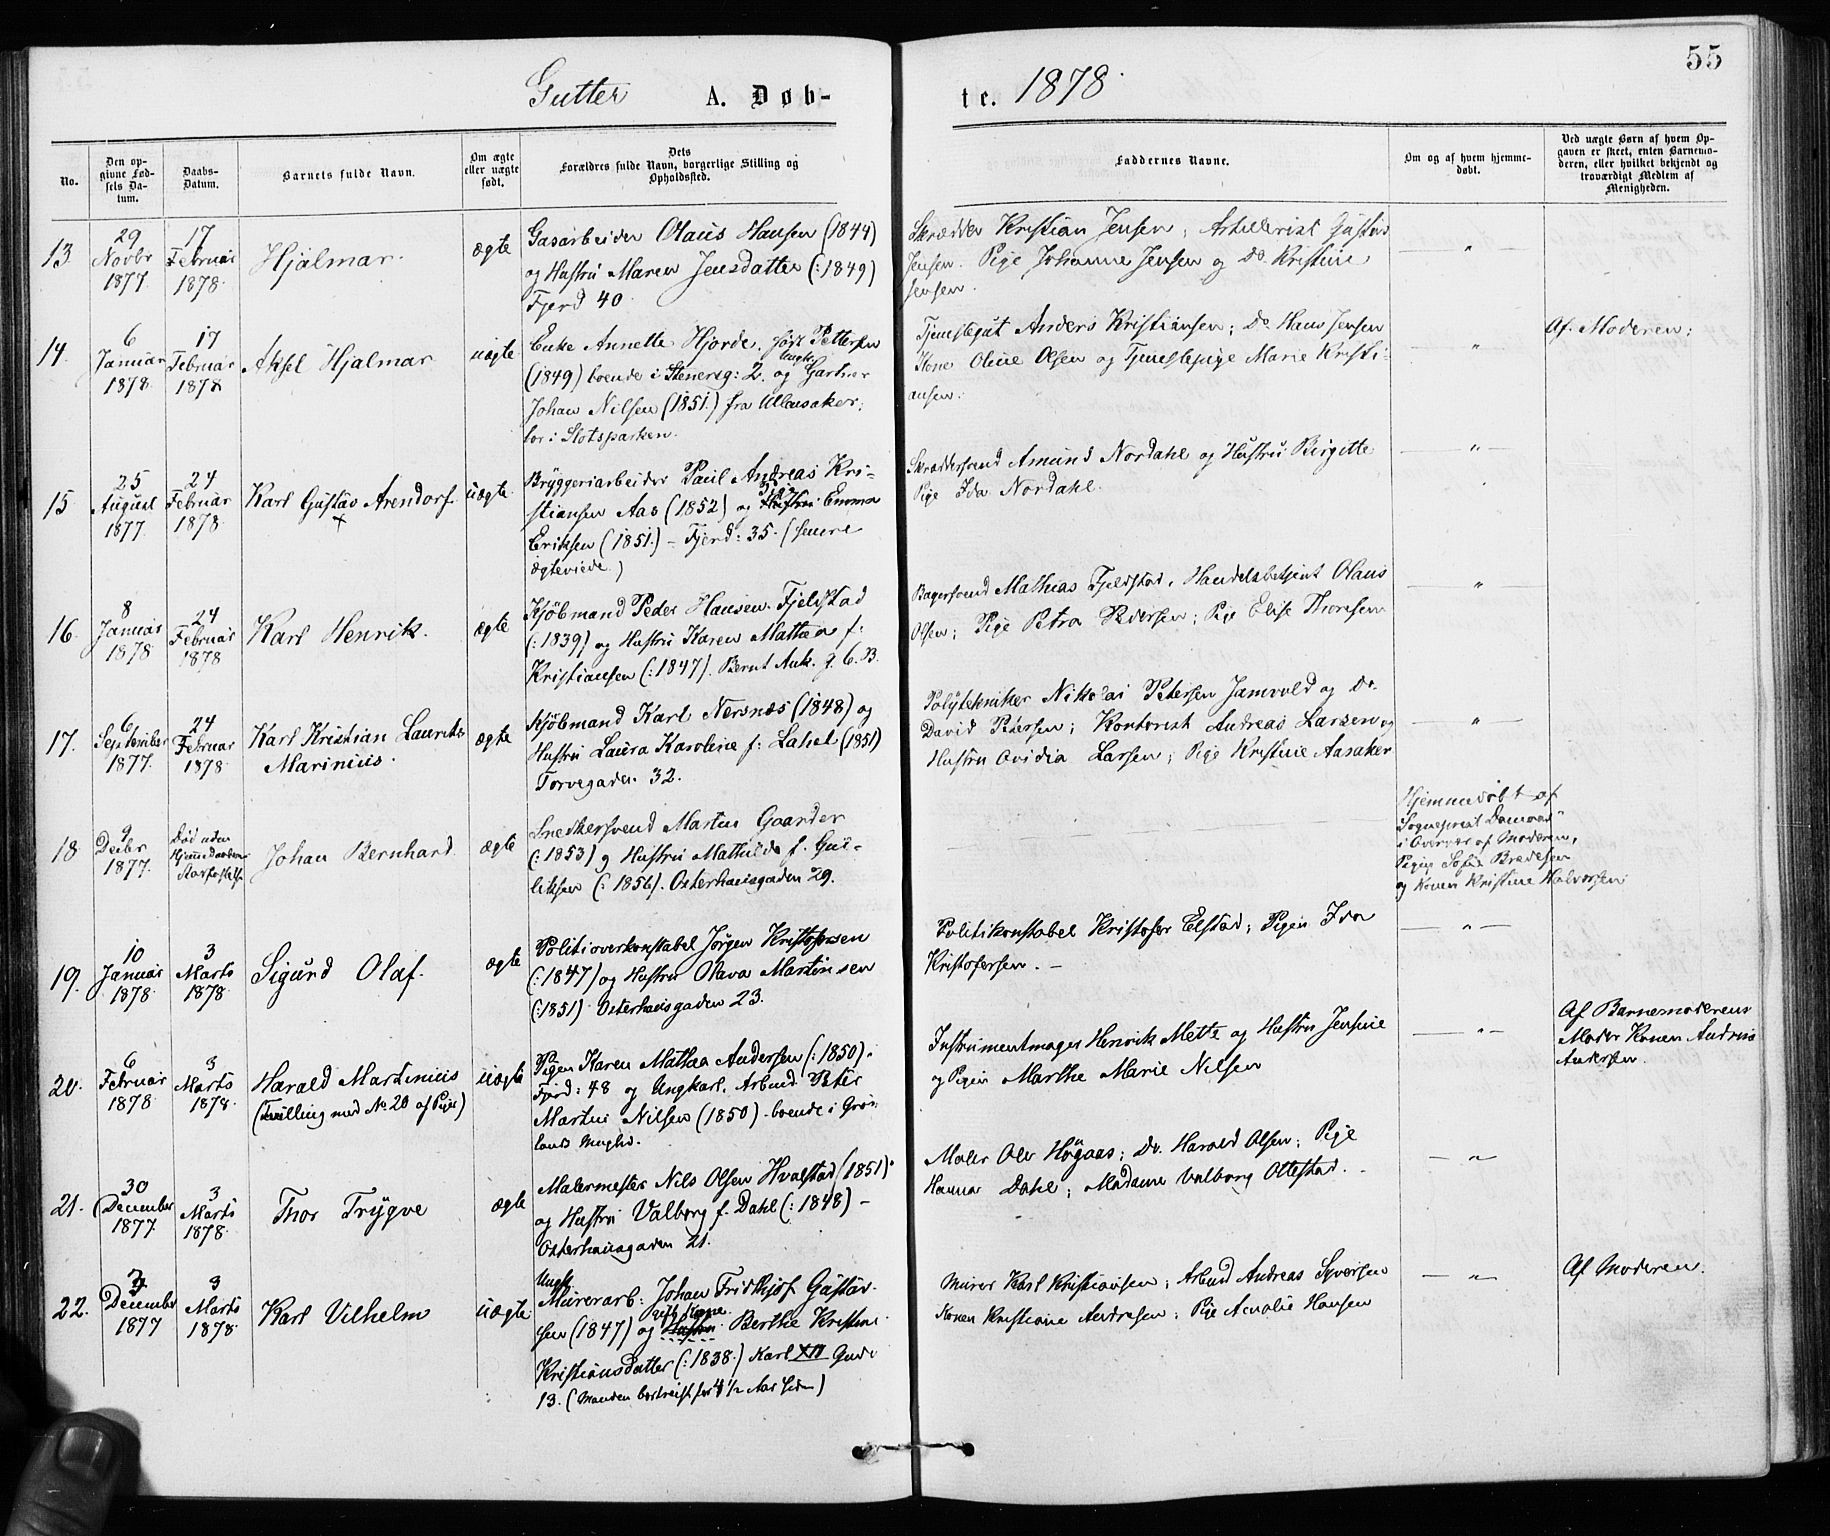 55
Gutter A. Døb-
te. 1878.
No.
Den op-
givne Fød-
sels Da-
tum.
Daabs-
Datum.
Barnets fulde Navn.
Om ægte
eller uægte
født.
Dets
Forældres fulde Navn, borgerlige Stilling og
Opholdssted.
Faddernes Navne.
Om og af hvem hjemme-
døbt.
Ved uægte Børn af hvem Op-
gaven er skeet, enten Barnemo-
deren, eller hvilket bekjendt og
troværdigt Medlem af
Menigheden.
13.
29
Novbr
1877.
17
Februar
1878.
Hjalmar.
ægte
Gasarbeider Olaus Hansen (1844)
og Hustru Maren Jensdatter (: 1849)
Fjerd 40.
Skrædder Kristian Jensen; Artillerist Gustav
Jensen. Pige Johanne Jensen og Do. Kristine
Jensen.
— " —
14.
6
Januar
1878.
17
Februar
1878
Aksel Hjalmar
uægte
Enke Annette Hjorde, født Pettersen
(1849) boende i Stenersg: 2. og Ungk. Gartner
Johan Nilsen (1851.) fra Ullensaker;
bor i Slotsparken.
Tjenestegut Anders Kristiansen; Do. Hans Jensen
Kone Oline Olsen og Tjenestepige Marie Kristi-
ansen.
— " —
Af Moderen:
15.
25
August
1877.
24
Februar
1878.
Karl Gustav Arendorf
+
uægte.
Bryggeriarbeider Paul Andreas Kri-
stiansen Aas (1852) og Pige Hustru Emma
Eriksen (1851.) – Fjerd: 35. (senere
ægteviede.)
Skræddersvend Amund Nordahl og Hustru Birgitte
Pige Ida Nordahl.
— " —
16.
8
Januar
1878
24
Februar
1878
Karl Henrik.
ægte
Kjöbmand Peder Hansen Fjeldstad
(: 1839) og Hustru Karen Mathea f:
Kristiansen (: 1847). Bernt Ank. g. 6. B.
Bagersvend Mathias Fjeldstad, Handelsbetjent Olaus
Olsen; Pige Petra Pedersen; Pige Elise Thoresen
— " —
17.
6
September
1877.
24
Februar
1878.
Karl Kristian Laurits
Marinius.
ægte
Kjöbmand Karl Nersnæs (1848) og
Hustru Laura Karoline f: Lahel (1851)
Torvegaden 32.
Polytekniker Nikolai Petersen Jamvold og Do.
David Petersen; Kontorist Andreas Larsen og
Hustru Ovidia Larsen; Pige Kristine Aasaker
— " —
18
9
Decbr
1877.
Død uden
Hjemmedaabens
Stadfæstelse
Johan Bernhard
ægte
Snedkersvend Martin Gaarder
(: 1853) og Hustru Mathilde f. Gul-
liksen (: 1856). Osterhausgaden 29.
Hjemmedøbt af
Sogneprest
i Overvær af Moderen,
Pigen Sofie Bredesen
og Konen Kristine Halvorsen.
19.
10
Januar
1878.
3
Marts
1878.
Sigurd Olaf.
ægte
Politioverkonstabel Jørgen Kristofersen
(: 1847) og Hustru Olava Martinsen
(: 1851) Osterhausgaden 23.
Politikonstabel Kristofer Elstad; Pigen Ida
Kristofersen. –
— " —
20.
6
Februar
1878
3
Marts
1878.
Harald Martinius
(Tvilling med No. 20 af Pige)
uægte
Pigen Karen Mathea Andersen (: 1850).
Fjerd: 48 og Ungkarl, Arbmd. Peter
Martin Nilsen (1850) boende i Grøn-
lands Menghd.
Instrumentmager Henrik Mette og Hustru Jensine
og Pigen Marthe Marie Nilsen
— " —
Af Barnemoderens
Moder Konen Andrine
Andersen.
21.
30
December
1877.
3
Marts
1878.
Thor Trygve
ægte
Malermester Nils Olsen Hvalstad (1851).
og Hustru Valborg f. Dahl (: 1848) –
Osterhausgaden 21.
Maler Ole Høgaas; Do. Harald Olsen; Pige
Hanna Dahl; Madame Valborg Ottestad.
— " —
22.
3
December
1877
3
Marts
1878.
Karl Vilhelm
uægte
Ungk.
Murerarb: Johan Fridthjof Gustav-
sen (1847) og gift Kone Hustru Berthe Kristine
Kristiansdatter (: 1838.) Karl XII Gade
13. (Manden bortreist for 4 1/2 Aar siden)
Murer Karl Kristiansen; Arbmd Andreas Syversen
Konen Kristiane Andresen; Pige Amalie Hansen
— " —
Af Moderen.